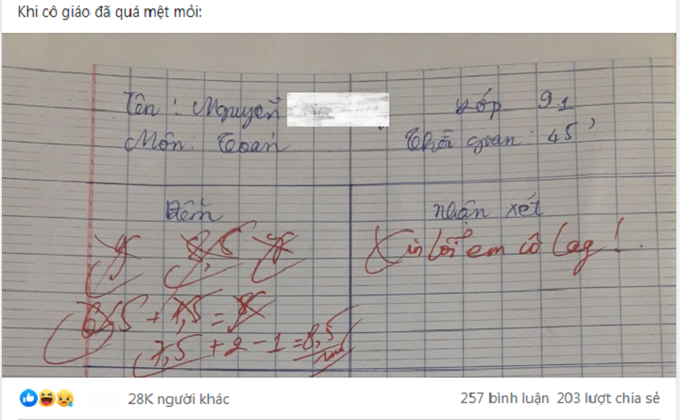 Khi cô giáo đã quá mệt mỏi:
Tên : Nguyễn
Lớp 9.1
Môn: Toán
Thời gian : 45'
Điểm
Nhận xét
Xin lỗi em cô lag !
9 8,5 7
+ 1,5 = 8
7,5 + 2 - 1 = 8,5
28K người khác
257 bình luận 203 lượt chia sẻ